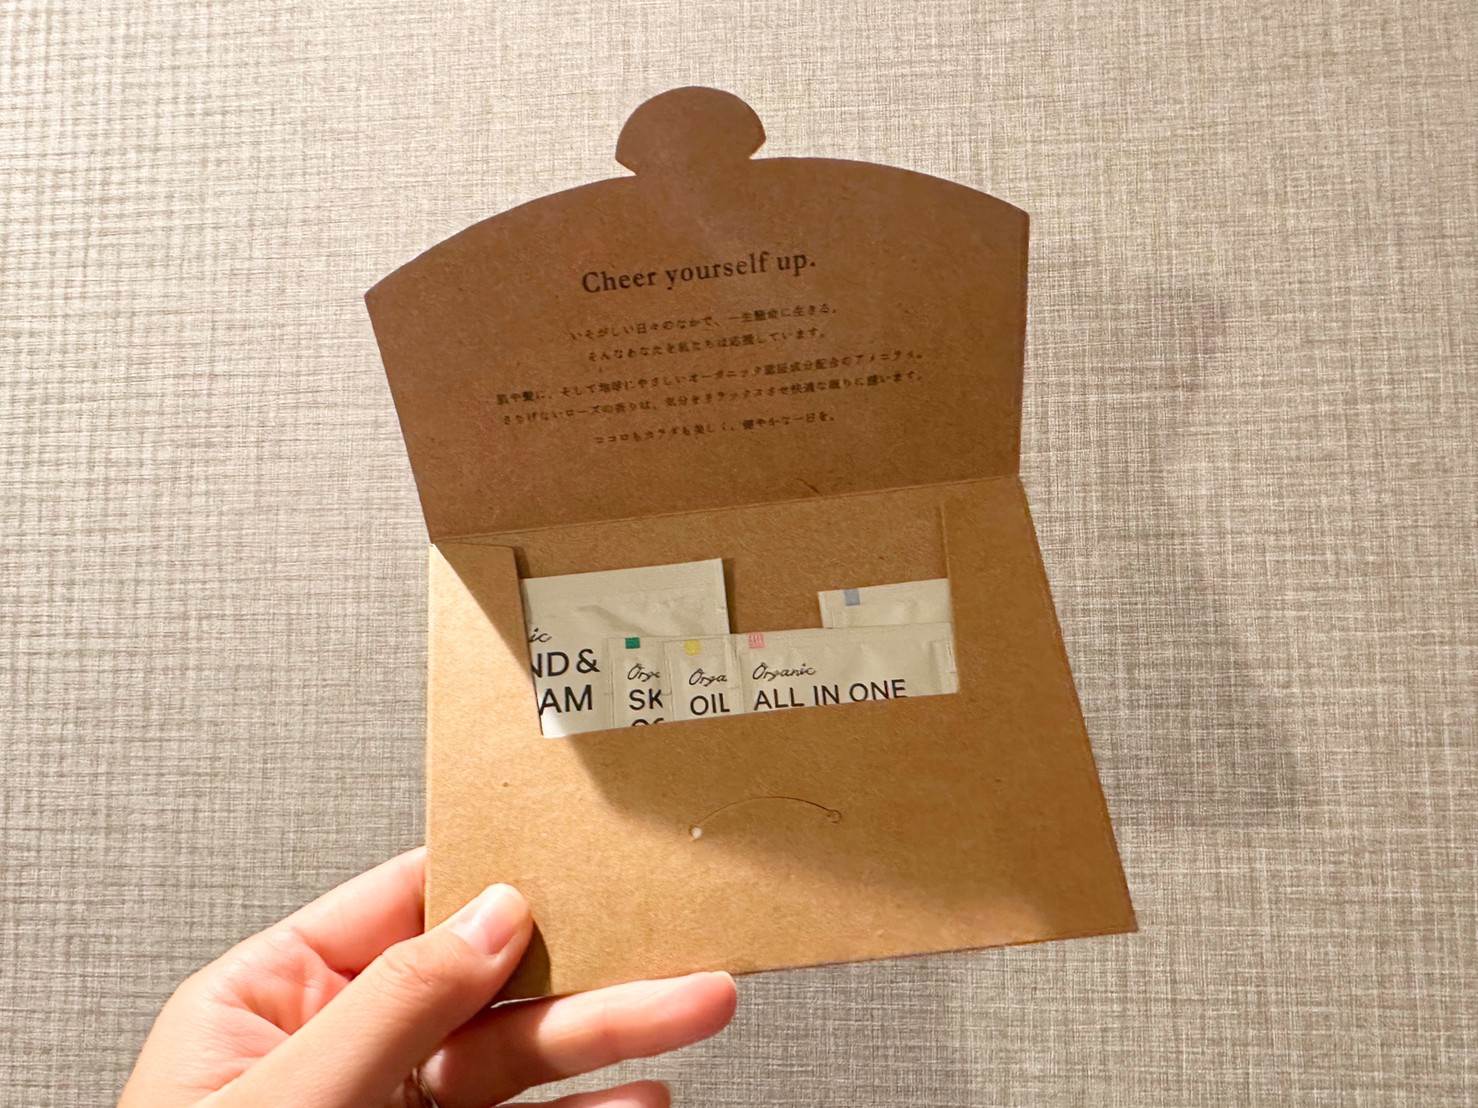 Cheer yourself up.
いそがしい日々のなかで、一生懸命に生きる。
そんなあなたを私たちは応援しています。
肌や髪に、そして地球にやさしいオーガニック認証成分配合のアメニティ。
さりげないローズの香りは、気分をリラックスさせ快適な眠りに誘います。
ココロもカラダも美しく、健やかな一日を。
ic
ND &
AM
Orga
SK
Orga
OIL
Organic
ALL IN ONE